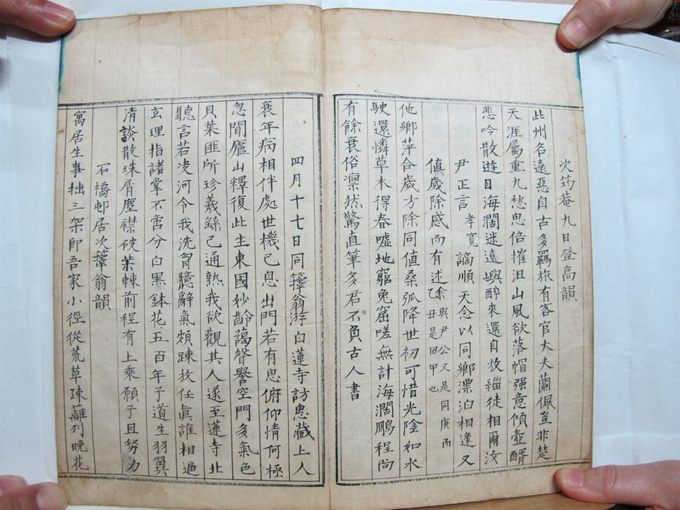 次筠菴九日登高韻
此州名遠惡自古多羇旅有客官大夫蘭佩並非楚
天涯屬重九愁思倍摧沮山風欲落帽强意傾壺醑
悲吟散遊目海濶迷遠嶼醉來還自放緇徒相爾汝
尹正言孝寛謫順天念以同鄉漂泊相逢又
値歲除感而有述余與尹公又是同庚而乙丑是回甲也
他鄉萍合歲方除同値桑弧降世初可惜光陰如水
駛還憐草木得春噓地窮兎窟嗟無計海濶鵬程尙
有餘衰俗凛然驚直筆多君不負古人書
四月十七日同籜翁游白蓮寺訪惠藏上人
衰年病相伴處世機已息出門若有思俯仰情何極
忽聞廬山釋復此生東國妙齡藹聲譽空門多氣色
貝葉匪所珍羲繇已通熟我欲觀其人遂至蓮寺北
聽言若凌河令我洗胷臆辭氣頗踈放任眞誰相逼
玄理指諸掌不啻分白黑鉢花五百年子道生羽翼
淸談散珠屑塵襟破荊棘前程有上乘願子且努力
石橋邨居次籜翁韻
寓居生事拙三架卽吾家小徑從荒草疎籬列晩花